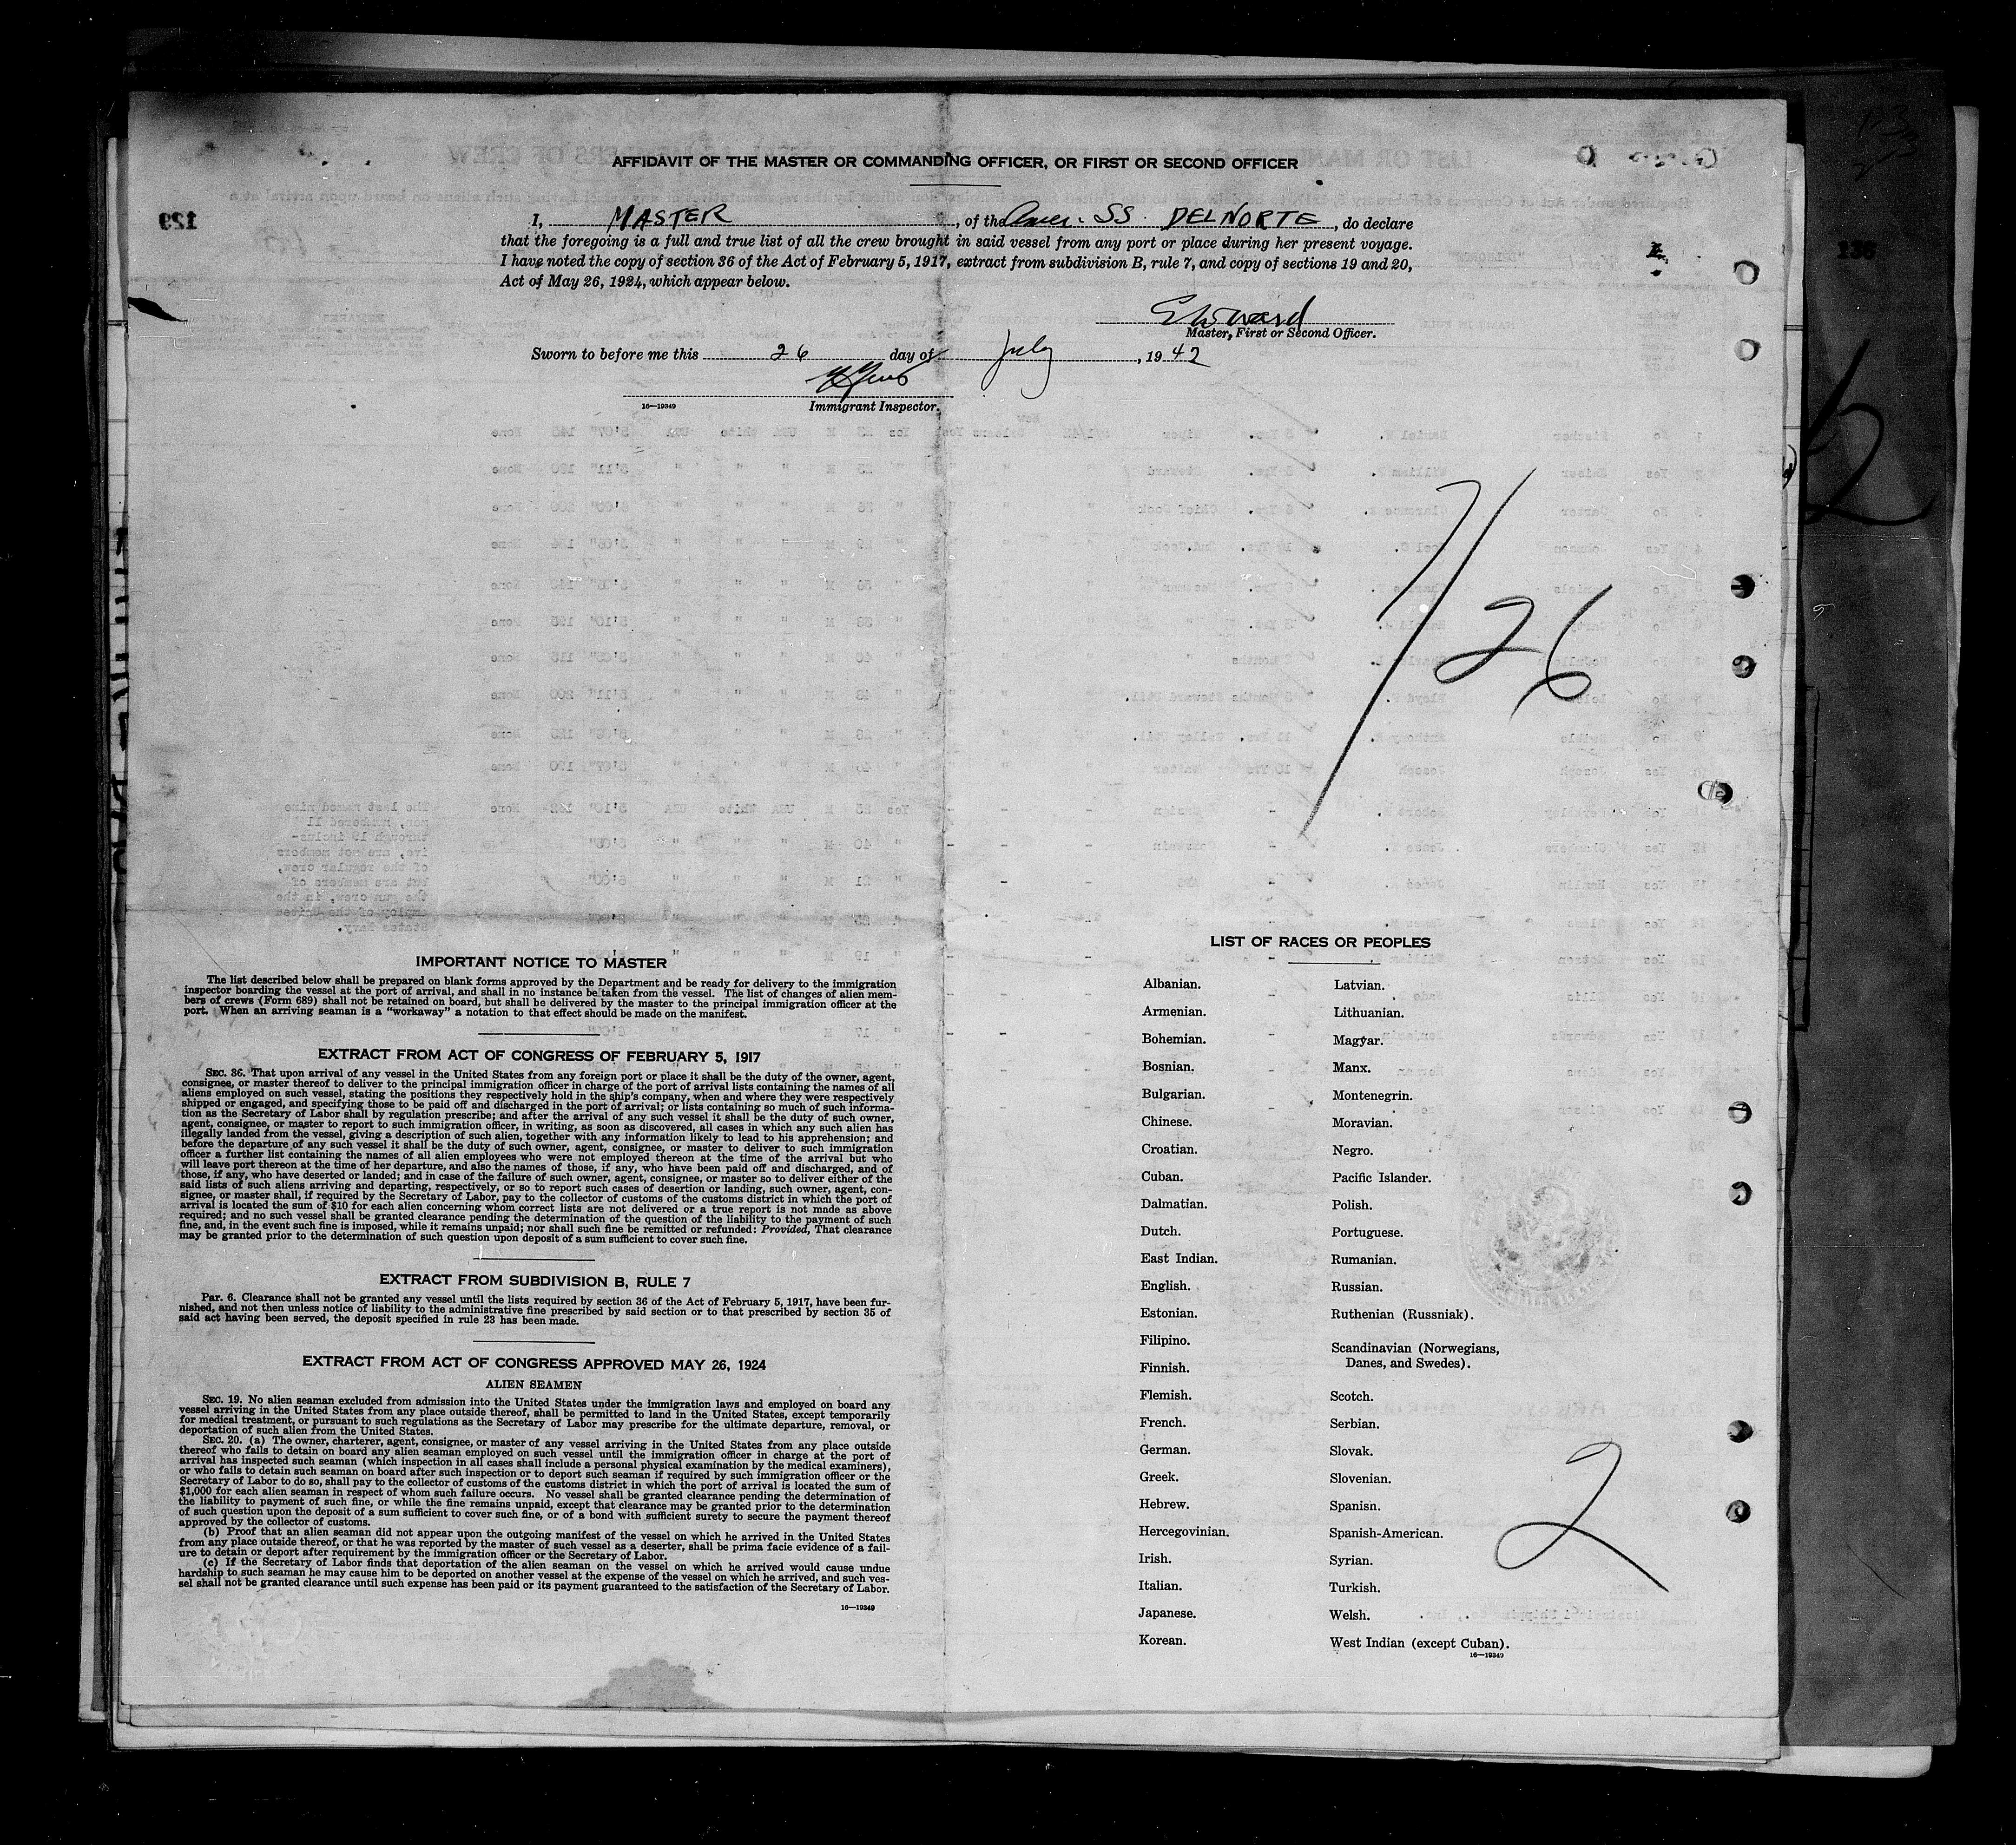 AFFIDAVIT OF THE MASTER OR COMMANDING OFFICER, OR FIRST OR SECOND OFFICER
I, MASTER, of the Amer. SS. DELNORTE, do declare
that the foregoing is a full and true list of all the crew brought in said vessel from any port or place during her present voyage.
I have noted the copy of section 36 of the Act of February 5, 1917, extract from subdivision B, rule 7, and copy of sections 19 and 20,
Act of May 26, 1924, which appear below.
Master, First or Second Officer.
Sworn to before me this 26 day of July, 1942
16—19349 Immigrant Inspector.
129
136
7/26
IMPORTANT NOTICE TO MASTER
The list described below shall be prepared on blank forms approved by the Department and be ready for delivery to the immigration
inspector boarding the vessel at the port of arrival, and shall in no instance be taken from the vessel. The list of changes of alien mem-
bers of crews (Form 689) shall not be retained on board, but shall be delivered by the master to the principal immigration officer at the
port. When an arriving seaman is a "workaway" a notation to that effect should be made on the manifest.
EXTRACT FROM ACT OF CONGRESS OF FEBRUARY 5, 1917
SEC. 36. That upon arrival of any vessel in the United States from any foreign port or place it shall be the duty of the owner, agent,
consignee, or master thereof to deliver to the principal immigration officer in charge of the port of arrival lists containing the names of all
aliens employed on such vessel, stating the positions they respectively hold in the ship's company, when and where they were respectively
shipped or engaged, and specifying those to be paid off and discharged in the port of arrival; or lists containing so much of such informa-
tion as the Secretary of Labor shall by regulation prescribe; and after the arrival of any such vessel it shall be the duty of such owner,
agent, consignee, or master to report to such immigration officer, in writing, as soon as discovered, all cases in which any such alien has
illegally landed from the vessel, giving a description of such alien, together with any information likely to lead to his apprehension; and
before the departure of any such vessel it shall be the duty of such owner, agent, consignee, or master to deliver to such immigration
officer a further list containing the names of all alien employees who were not employed thereon at the time of the arrival but who
will leave port thereon at the time of her departure, and also the names of those, if any, who have been paid off and discharged, and of
those, if any, who have deserted or landed; and in case of the failure of such owner, agent, consignee, or master so to deliver either of the
said lists of such aliens arriving and departing, respectively, or so to report such cases of desertion or landing, such owner, agent, con-
signee, or master shall, if required by the Secretary of Labor, pay to the collector of customs of the customs district in which the port of
arrival is located the sum of $10 for each alien concerning whom correct lists are not delivered or a true report is not made as above
required; and no such vessel shall be granted clearance pending the determination of the question of the liability to the payment of such
fine, and, in the event such fine is imposed, while it remains unpaid; nor shall such fine be remitted or refunded: Provided, That clearance
may be granted prior to the determination of such question upon deposit of a sum sufficient to cover such fine.
EXTRACT FROM SUBDIVISION B, RULE 7
PAR. 6. Clearance shall not be granted any vessel until the lists required by section 36 of the Act of February 5, 1917, have been fur-
nished, and not then unless notice of liability to the administrative fine prescribed by said section or to that prescribed by section 35 of
said act having been served, the deposit specified in rule 23 has been made.
EXTRACT FROM ACT OF CONGRESS APPROVED MAY 26, 1924
ALIEN SEAMEN
SEC. 19. No alien seaman excluded from admission into the United States under the immigration laws and employed on board any
vessel arriving in the United States from any place outside thereof, shall be permitted to land in the United States, except temporarily
for medical treatment, or pursuant to such regulations as the Secretary of Labor may prescribe for the ultimate departure, removal, or
deportation of such alien from the United States.
SEC. 20. (a) The owner, charterer, agent, consignee, or master of any vessel arriving in the United States from any place outside
thereof who fails to detain on board any alien seaman employed on such vessel until the immigration officer in charge at the port of
arrival has inspected such seaman (which inspection in all cases shall include a personal physical examination by the medical examiners),
or who fails to detain such seaman on board after such inspection or to deport such seaman if required by such immigration officer or the
Secretary of Labor to do so, shall pay to the collector of customs of the customs district in which the port of arrival is located the sum of
$1,000 for each alien seaman in respect of whom such failure occurs. No vessel shall be granted clearance pending the determination of
the liability to payment of such fine, or while the fine remains unpaid, except that clearance may be granted prior to the determination
of such question upon the deposit of a sum sufficient to cover such fine, or of a bond with sufficient surety to secure the payment thereof
approved by the collector of customs.
(b) Proof that an alien seaman did not appear upon the outgoing manifest of the vessel on which he arrived in the United States
from any place outside thereof, or that he was reported by the master of such vessel as a deserter, shall be prima facie evidence of a fail-
ure to detain or deport after requirement by the immigration officer or the Secretary of Labor.
(c) If the Secretary of Labor finds that deportation of the alien seaman on the vessel on which he arrived would cause undue
hardship to such seaman he may cause him to be deported on another vessel at the expense of the vessel on which he arrived, and such ves-
sel shall not be granted clearance until such expense has been paid or its payment guaranteed to the satisfaction of the Secretary of Labor.
16—19349
LIST OF RACES OR PEOPLES
Albanian.
Armenian.
Bohemian.
Bosnian.
Bulgarian.
Chinese.
Croatian.
Cuban.
Dalmatian.
Dutch.
East Indian.
English.
Estonian.
Filipino.
Finnish.
Flemish.
French.
German.
Greek.
Hebrew.
Hercegovinian.
Irish.
Italian.
Japanese.
Korean.
Latvian.
Lithuanian.
Magyar.
Manx.
Montenegrin.
Moravian.
Negro.
Pacific Islander.
Polish.
Portuguese.
Rumanian.
Russian.
Ruthenian (Russniak).
Scandinavian (Norwegians,
Danes, and Swedes).
Scotch.
Serbian.
Slovak.
Slovenian.
Spanish.
Spanish-American.
Syrian.
Turkish.
Welsh.
West Indian (except Cuban).
16—19349
2